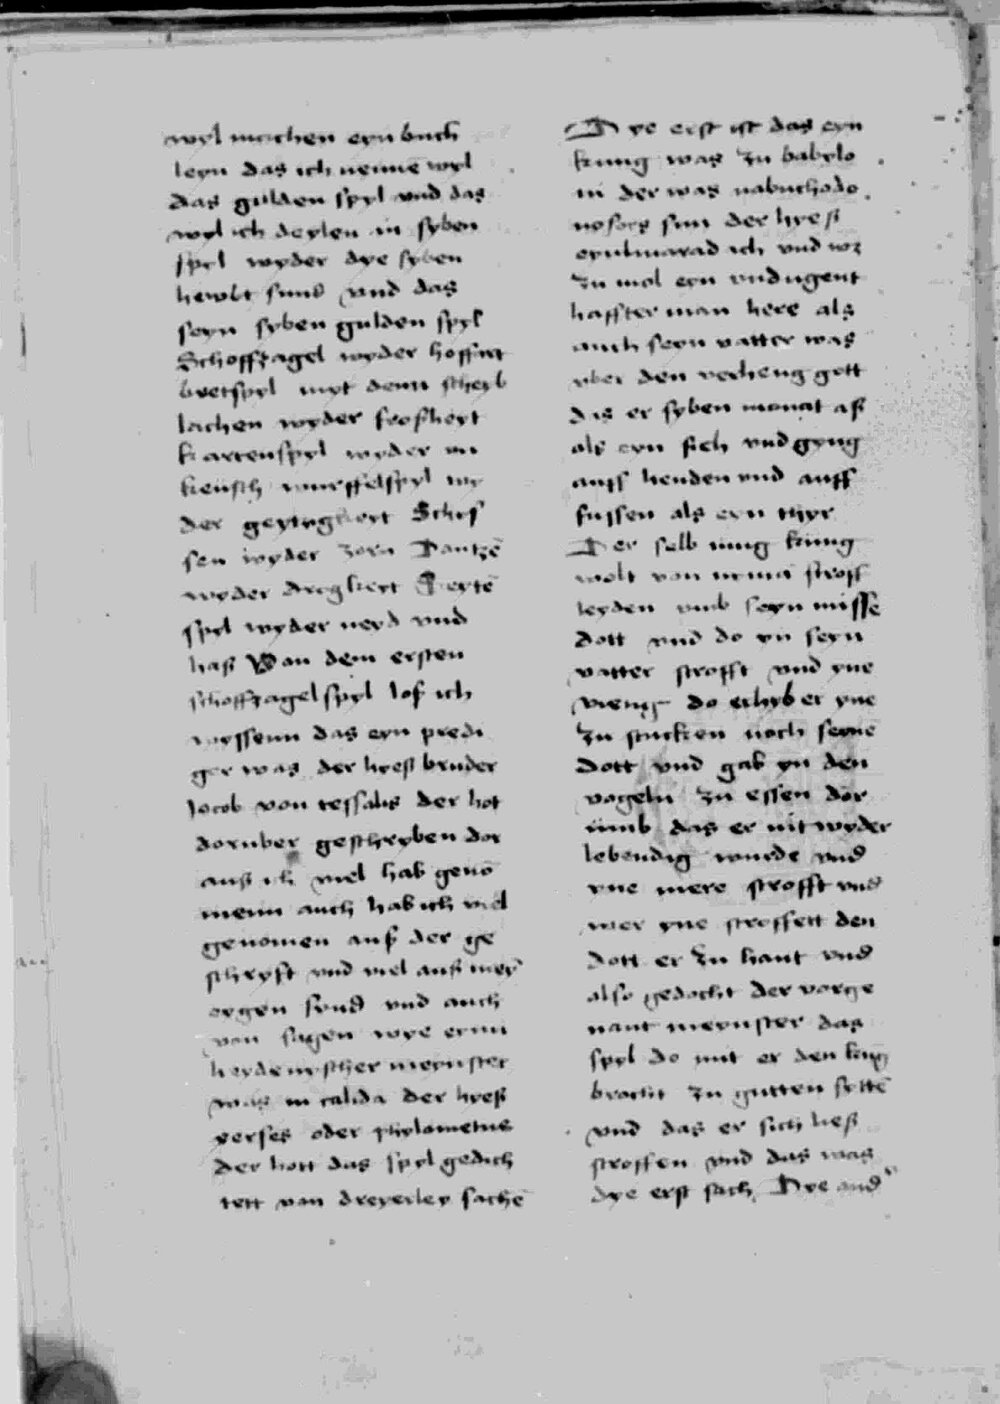 wyl machen eyn buch
leyn das ich nenne wyl
das gulden spyl vnd das
wyl ich deylen in syben
spyl wyder dye syben
hewbt sund vnd das
seyn syben gulden spyl
Schoffzagel wyder hoffart
bretspyl myt denn scheyb
lachen wyder froßheyt
kartenspyl wyder vn
keusch wurffelspyl wy
der geytigkeyt Schys
sen wyder zorn Dantzē
wyder dregkeyt Seytē
spyl wyder neyd vnd
haß Von dem ersten
schoffzagel spyl loß ich
wyssenn das eyn predi
ger was der hyeß bruder
Jocob von tessalis der hot
doruber geschryben dor
auß ich vyel hab geno
menn auch hab ich viel
genomen auß der ge
schryft vnd viel auß mey
eygen synd vnd auch
von sagen wye eynn
heydenyscher meynster
was in calda der hyeß
xerses oder phylometus
der hott das spyl gedich
tett von dreyerley sachē
Dye erst ist das eyn
kunig was zu babylo
ni der was nabuchodo
nosors sun der hyeß
eynlmarad ich vnd wz
zu mol eyn vndugent
haffter man here als
auch seyn vatter was
vber den verheng gott
das er syben monat aß
als eyn fich vnd gyng
auff henden vnd auff
fussen als eyn thyr
Der selb nung kunig
wolt von nyma stroff
leyden vmb seyn misse
dott vnd do yn seyn
vatter strofft vnd yne
vieng do erhyb er yne
zu stucken noch seyne
dott vnd gab yn den
vogeln zu essen dor
umb das er nit wyder
lebendig wurde vnd
yne mere strofft vnd
wer yne stroffett den
dott er zu hant vnd
also gedocht der vorge
nant meynster das
spyl do mit er den knig
brocht zu gutten syttē
vnd das er sich ließ
stroffen vnd das was
dye erst sach Dye and